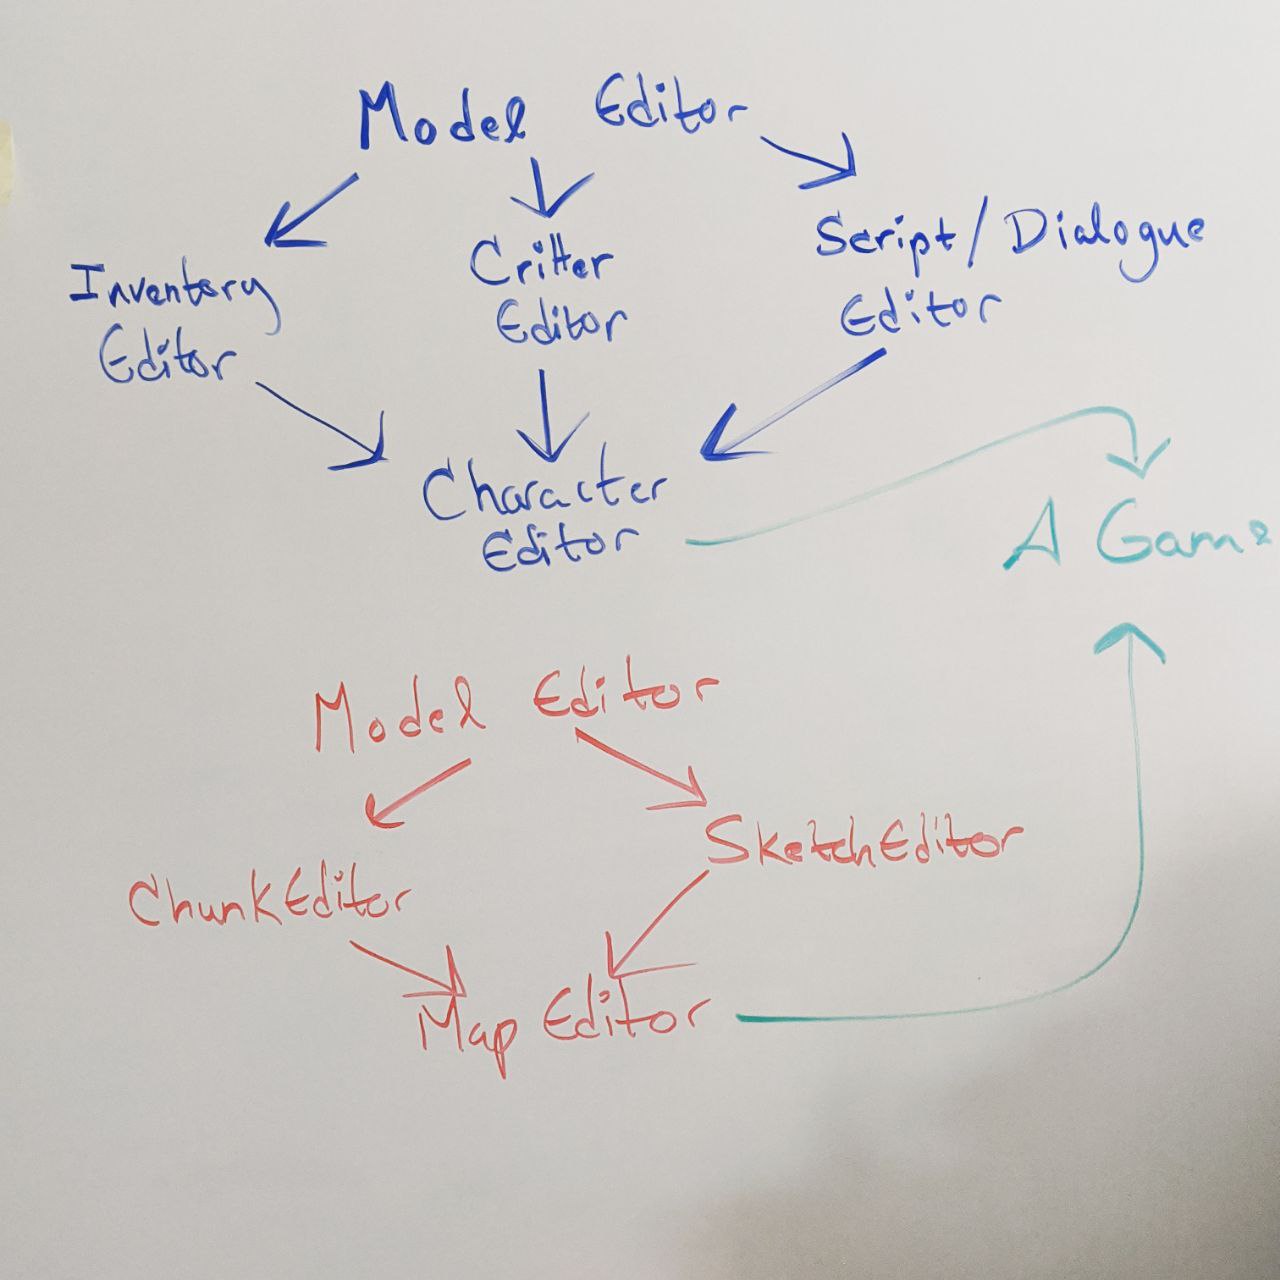 Model Editor
Inventory
Editor
Critter
Editor
Script/Dialogue
Editor
Character
Editor
A Game
Model Editor
ChunkEditor
SketchEditor
Map Editor